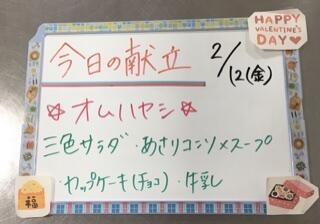 HAPPY
VALENTINE'S
DAY♥
今日の献立
2/12(金)
☆オムハヤシ☆
三色サラダ・あさりコンソメスープ
・カップケーキ(チョコ)・牛乳
福